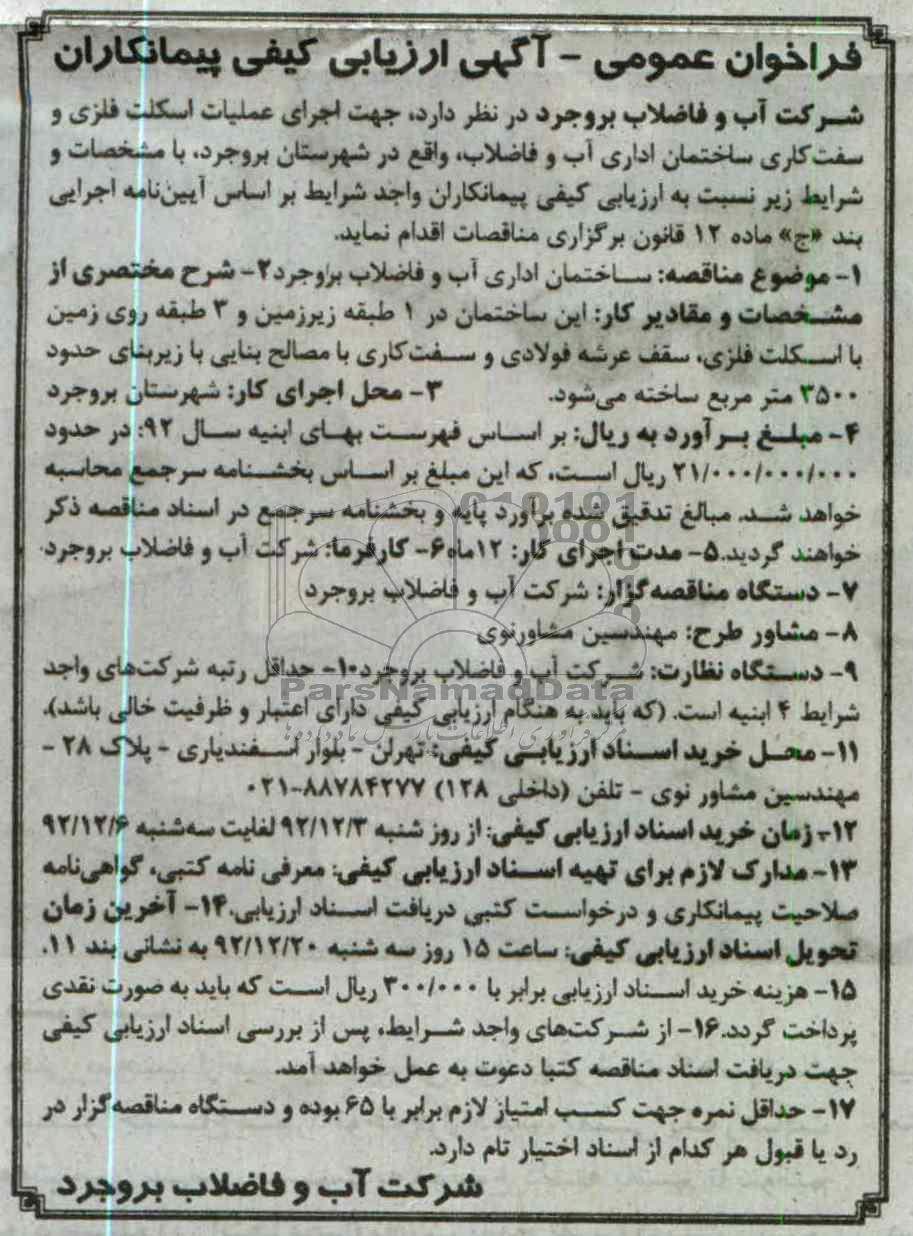 فراخوان عمومی - آگهی ارزیابی کیفی پیمانکاران
شرکت آب و فاضلاب بروجرد در نظر دارد، جهت اجرای عملیات اسکلت فلزی و
سفت‌کاری ساختمان اداری آب و فاضلاب، واقع در شهرستان بروجرد، با مشخصات و
شرایط زیر نسبت به ارزیابی کیفی پیمانکاران واجد شرایط بر اساس آیین‌نامه اجرایی
بند «ج» ماده ۱۲ قانون برگزاری مناقصات اقدام نماید.
۱- موضوع مناقصه: ساختمان اداری آب و فاضلاب بروجرد ۲- شرح مختصری از
مشخصات و مقادیر کار: این ساختمان در ۱ طبقه زیرزمین و ۳ طبقه روی زمین
با اسکلت فلزی، سقف عرشه فولادی و سفت‌کاری با مصالح بنایی با زیربنای حدود
۳۵۰۰ متر مربع ساخته می‌شود. ۳- محل اجرای کار: شهرستان بروجرد
۴- مبلغ برآورد به ریال: بر اساس فهرست بهای ابنیه سال ۹۲: در حدود
۲۱/۰۰۰/۰۰۰/۰۰۰ ریال است، که این مبلغ بر اساس بخشنامه سرجمع محاسبه
خواهد شد. مبالغ تدقیق شده برآورد پایه و بخشنامه سرجمع در اسناد مناقصه ذکر
خواهند گردید. ۵- مدت اجرای کار: ۱۲ماه ۶- کارفرما: شرکت آب و فاضلاب بروجرد
۷- دستگاه مناقصه‌گزار: شرکت آب و فاضلاب بروجرد
۸- مشاور طرح: مهندسین مشاور نوی
۹- دستگاه نظارت: شرکت آب و فاضلاب بروجرد ۱۰- حداقل رتبه شرکت‌های واجد
شرایط ۴ ابنیه است. (که باید به هنگام ارزیابی کیفی دارای اعتبار و ظرفیت خالی باشد).
ParsNamadData
۱۱- محل خرید اسناد ارزیابی کیفی: تهران - بلوار اسفندیاری - پلاک ۲۸ -
مهندسین مشاور نوی - تلفن (داخلی ۱۲۸) ۸۸۷۸۴۲۷۷-۰۲۱
۱۲- زمان خرید اسناد ارزیابی کیفی: از روز شنبه ۹۲/۱۲/۳ لغایت سه‌شنبه ۹۲/۱۲/۶
۱۳- مدارک لازم برای تهیه اسناد ارزیابی کیفی: معرفی نامه کتبی، گواهی‌نامه
صلاحیت پیمانکاری و درخواست کتبی دریافت اسناد ارزیابی. ۱۴- آخرین زمان
تحویل اسناد ارزیابی کیفی: ساعت ۱۵ روز سه شنبه ۹۲/۱۲/۲۰ به نشانی بند ۱۱.
۱۵- هزینه خرید اسناد ارزیابی برابر با ۳۰۰/۰۰۰ ریال است که باید به صورت نقدی
پرداخت گردد. ۱۶- از شرکت‌های واجد شرایط، پس از بررسی اسناد ارزیابی کیفی
جهت دریافت اسناد مناقصه کتبا دعوت به عمل خواهد آمد.
۱۷- حداقل نمره جهت کسب امتیاز لازم برابر با ۶۵ بوده و دستگاه مناقصه‌گزار در
رد یا قبول هر کدام از اسناد اختیار تام دارد.
شرکت آب و فاضلاب بروجرد